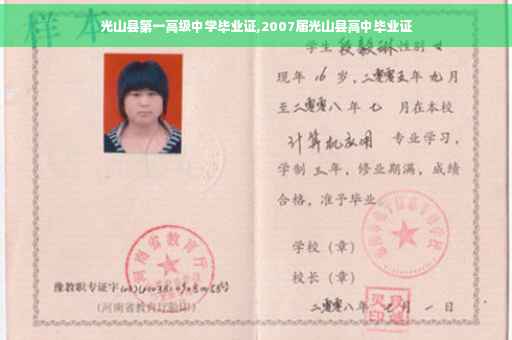 光山县第一高级中学毕业证,2007届光山县高中毕业证
样本
学生 段毅琳 性别 女
现年 16 岁,二零零五年 九月
至二零零八年 七 月在本校
计算机应用 专业学习,
学制 三 年,修业期满,成绩
合格,准予毕业
学校(章)
校长(章)
二零零八年 月 一 日
河南省教育厅
豫教职专证字
(河南省教育厅验印)